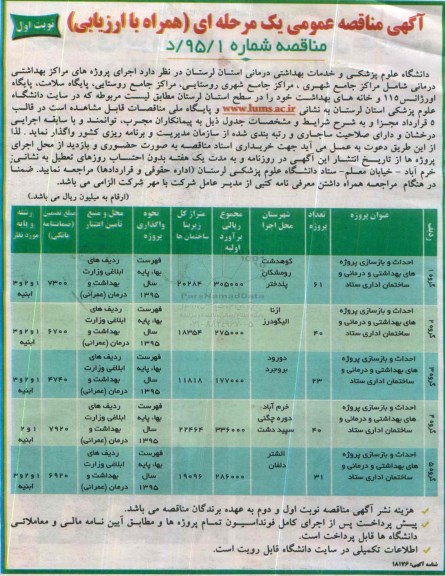 آگهی مناقصه عمومی یک مرحله ای (همراه با ارزیابی)
نوبت اول
مناقصه شماره ۹۵/۱/د
دانشگاه علوم پزشکی و خدمات بهداشتی درمانی استان لرستان در نظر دارد اجرای پروژه های مراکز بهداشتی
درمانی شامل مراکز جامع شهری ، مراکز جامع شهری روستایی، مراکز جامع روستایی، پایگاه سلامت، پایگاه
اورژانس۱۱۵ و خانه های بهداشت خود را در سطح استان لرستان مطابق لیست مربوطه که در سایت دانشگاه
علوم پزشکی استان لرستان به نشانی www.lums.ac.ir و پایگاه ملی مناقصات قابل مشاهده است در قالب
۵ قرارداد مجزا و به شرح شرایط و مشخصات جدول ذیل به پیمانکاران مجرب، توانمند و با سابقه اجرایی
درخشان و دارای صلاحیت ساجاری و رتبه بندی شده از سازمان مدیریت و برنامه ریزی کشور واگذار نماید. لذا
از این طریق دعوت به عمل می آید جهت خریداری اسناد مناقصه به صورت حضوری و بازدید از محل اجرای
پروژه ها از تاریخ انتشار این آگهی در روزنامه و به مدت یک هفته بدون احتساب روزهای تعطیل به نشانی:
خرم آباد - خیابان معلم- ستاد دانشگاه علوم پزشکی لرستان (اداره حقوقی و قراردادها) مراجعه نمایید. ضمنا
در هنگام مراجعه همراه داشتن معرفی نامه کتبی از مدیر عامل شرکت با مهر شرکت الزامی می باشد.
(ارقام به میلیون ریال می باشد.)
ردیف | عنوان پروژه | تعداد پروژه | شهرستان محل اجرا | مجموع ریالی برآورد اولیه | متراژ کل زیربنا ساختمان ها | نحوه واگذاری پروژه | محل و منبع تأمین اعتبار | مبلغ تضمین (ضمانتنامه بانکی) | رشته و پایه مورد نظر
گروه ۱ | احداث و بازسازی پروژه های بهداشتی و درمانی و ساختمان اداری ستاد | ۶۱ | کوهدشت رومشکان پلدختر | ۳۰۵۰۰۰ | ۲۰۲۸۴ | فهرست بها، پایه سال ۱۳۹۵ | ردیف های ابلاغی وزارت بهداشت و درمان (عمرانی) | ۷۳۰۰ | ۱و۲و۳ ابنیه
گروه ۲ | احداث و بازسازی پروژه های بهداشتی و درمانی و ساختمان اداری ستاد | ۴۰ | ازنا الیگودرز | ۲۷۵۰۰۰ | ۱۸۳۵۴ | فهرست بها، پایه سال ۱۳۹۵ | ردیف های ابلاغی وزارت بهداشت و درمان (عمرانی) | ۶۷۰۰ | ۱و۲و۳ ابنیه
گروه ۳ | احداث و بازسازی پروژه های بهداشتی و درمانی و ساختمان اداری ستاد | ۲۳ | دورود بروجرد | ۱۷۷۰۰۰ | ۱۱۸۱۸ | فهرست بها، پایه سال ۱۳۹۵ | ردیف های ابلاغی وزارت بهداشت و درمان (عمرانی) | ۴۷۴۰ | ۱و۲و۳ ابنیه
گروه ۴ | احداث و بازسازی پروژه های بهداشتی و درمانی و ساختمان اداری ستاد | ۴۰ | خرم آباد دوره چگنی سپید دشت | ۳۳۶۰۰۰ | ۲۲۴۶۴ | فهرست بها، پایه سال ۱۳۹۵ | ردیف های ابلاغی وزارت بهداشت و درمان (عمرانی) | ۷۹۲۰ | ۱و ۲ ابنیه
گروه ۵ | احداث و بازسازی پروژه های بهداشتی و درمانی و ساختمان اداری ستاد | ۳۱ | الشتر دلفان | ۲۸۶۰۰۰ | ۱۹۰۹۶ | فهرست بها، پایه سال ۱۳۹۵ | ردیف های ابلاغی وزارت بهداشت و درمان (عمرانی) | ۶۹۲۰ | ۱و۲و۳ ابنیه
هزینه نشر آگهی مناقصه نوبت اول و دوم به عهده برندگان مناقصه می باشد.
پیش پرداخت پس از اجرای کامل فونداسیون تمام پروژه ها و مطابق آیین نامه مالی و معاملاتی
دانشگاه ها قابل پرداخت است.
اطلاعات تکمیلی در سایت دانشگاه قابل رویت است.
شناسه آگهی: ۱۸۱۷۶